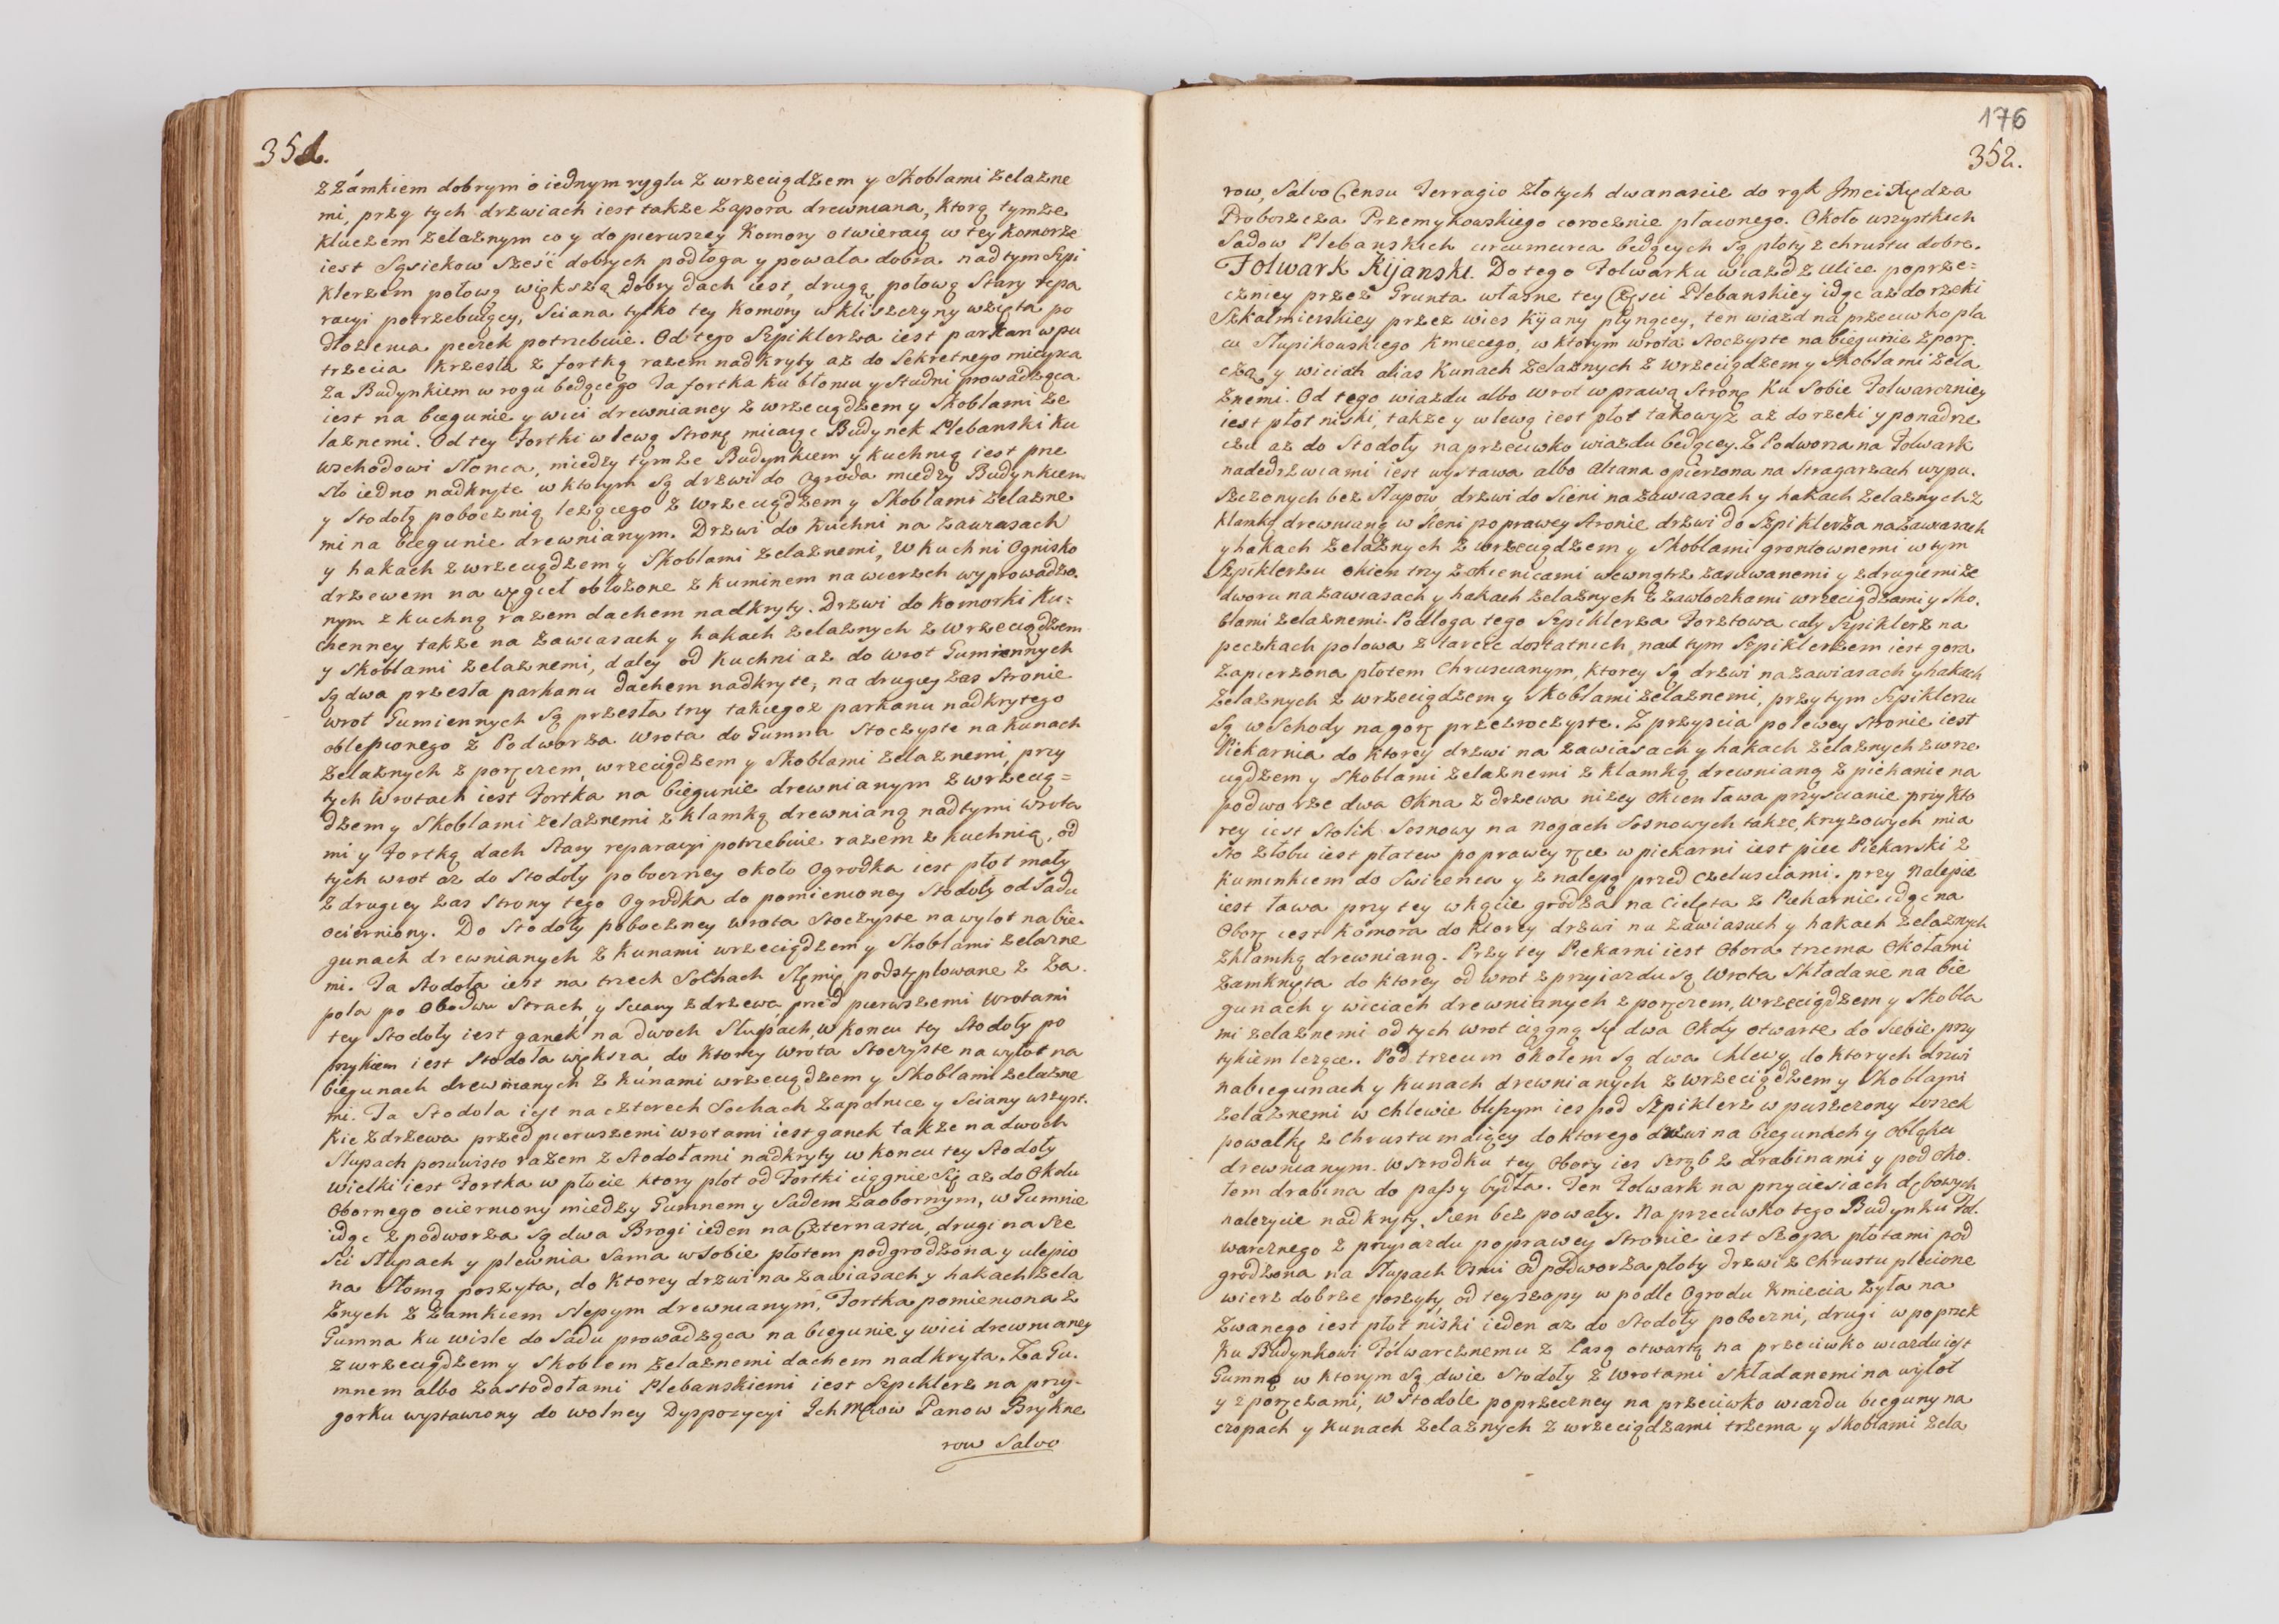 351.
z zamkiem dobrym o iednym ryglu z wrzeciądzem y Skoblami żelazne
mi, przy tych drzwiach iest także Zapora drewniana, ktorą tymże
kluczem żelaznym co y do pierwszey Komory otwieraią w tey komorze
iest Sąsiekow Sześć dobrych podłoga y powała dobra nad tym Szpi
klerzem połową większą dobry dach iest, drugą połową Stary repa
racyi potrzebuiący, Sciana tylko tey Komory w kliszczyny wzięta po
dłożenia peczek potrzebuie. Od tego Szpiklerza iest parkan w pu
trzecia krzesła z fortką razem nadkryty aż do Sekretnego mieysca
za Budynkiem w rogu będącego Ta fortka ku błoniu y Studni prowadząca
iest na biegunie y wici drewnianey z wrzeciądzem y Skoblami że
laznemi. Od tey Fortki w lewą Stronę micaiąc Budynek Plebanski ku
wschodowi Słonca, miedzy tymże Budynkiem y kuchnią iest prze
sło iedno nadkryte w ktorym są drzwi do Ogroda miedzy Budynkiem
y Stodołą poboczną leżącego z wrzeciądzem y Skoblami żelazne
mi na biegunie drewnianym. Drzwi do kuchni na zawiasach
y hakach z wrzeciądzem y Skoblami żelaznemi, W kuchni Ognisko
drzewem na węgieł obłożone z kuminem na wierzch wyprowadzo.
nym z kuchnią razem dachem nadkryty. Drzwi do komorki Ku=
chenney także na zawiasach y hakach żelaznych z wrzeciądzem
y Skoblami żelaznemi, daley od kuchni aż do wrot Gumiennych
są dwa przesła parkanu dachem nadkryte, na drugiey zas Stronie
wrot Gumiennych są przesła trzy takiegoż parkanu nadkrytego
oblepionego z Podworza. Wrota do Gumna Stoczyste na kunach
żelaznych z poręczem, wrzeciądzem y Skoblami żelaznemi, przy
tych wrotach iest Fortka na biegunie drewnianym z wrzecią=
dzem y Skoblami żelaznemi z klamką drewnianą nad tymi wrota
mi y Fortką dach Stary reparacyi potrzebuie razem z kuchnią, od
tych wrot aż do Stodoły poboczney około Ogrodka iest płot mały
z drugiey zas Strony tego Ogrodka do pomienioney Stodoły od Sadu
ocierniony. Do Stodoły poboczney wrota Stoczyste na wylot na bie.
gunach drewnianych z kunami wrzeciądzem y Skoblami żelazne
mi. Ta Stodoła iest na trzech Sochach Slęmię podstęplowane z Za.
pola po obodwu Strach, y Sciany z drzewa, przed pierwszemi wrotami
tey Stodoły iest ganek na dwoch Słupach, w koncu tey Stodoły po
przykiem iest Stodoła większa do ktorey wrota Stoczyste na wylot na
biegunach drewnianych z kunami wrzeciądzem y Skoblami żelazne
mi. Ta Stodola iest na czterech Sochach Zapolnice y Sciany wszyst.
kie z drzewa przed pierwszemi wrotami iest ganek także na dwoch
Słupach posuwisto razem z Stodołami nadkryty w koncu tey Stodoły
wielki iest Fortka w płocie ktory płot od Fortki ciągnie Się aż do Okołu
Obornego ocierniony miedzy Gumnem y Sadem Zaobornym, w Gumnie
idąc z podworza są dwa Brogi ieden na Czternastu, drugi na Sze
Sci Słupach y plewnia Sama w Sobie płotem podgrodzona y ulepio
na Słomą poszyta, do ktorey drzwi na zawiasach y hakach żela
znych z Zamkiem Slepym drewnianym, Fortka pomieniona z
Gumna ku wisle do Sadu prowadząca na biegunie y wici drewnianey
z wrzeciądzem y Skoblem żelaznemi dachem nadkryta. Za Gu.
mnem albo za Stodołami Plebanskiemi iest Szpiklerz na przy-
gorku wystawiony do wolney Dyspozycyi Ichmciow Panow Brykne
row Salvo
176
352.
row, Salvo Censu Terragio złotych dwanascie do rąk Jmci Xiędza
Proboszcza Przemykowskiego corocznie płaconego. Około wszystkich
Sadow Plebanskich circumcirca będących są płoty z chrustu dobre.
Folwark Kijanski. Do tego Folwarku wiazd z Ulice poprze=
czniey przez Grunta własne tey Części Plebanskiey idąc aż do rzeki
Szkalmierskiey przez wies Kijany płynącey, ten wiazd na przeciwko pla
cu Słupikowskiego Kmiecego, w ktorym wrota Stoczyste na biegunie z porę.
czą, y wiciah alias Kunach żelaznych z wrzeciądzem y Skoblami żela
znemi. Od tego wiazdu albo wrot w prawą Stronę ku Sobie Folwarczniey
iest płot niski, także y w lewą iest płot takowyż aż do rzeki y ponadrze
czu aż do Stodoły na przeciwko wiazdu będącey. Z Podworza na Folwark
nadedrzwiami iest wystawa albo Altana opierzona na Stragarzach wypu.
szczonych bez Słupow, drzwi do Sieni na zawiasach y hakach żelaznych z
klamką drewnianą w Sieni po prawey Stronie drzwi do Szpiklerza na zawiasach
y hakach żelaznych z wrzeciądzem y Skoblami grontownemi w tym
Szpiklerzu okien trzy z okienicami wewnątrz zasuwanemi y z drugiemi ze
dworu na zawiasach y hakach żelaznych z zawłoczkami wrzeciądzami y Sko.
blami żelaznemi. Podłoga tego Szpiklerza Forsztowa cały Szpiklerz na
peczkach polowa z tarcic dostatnich, nad tym Szpiklerzem iest gora
zapierzona płotem Chruscianym, ktorey są drzwi na zawiasach y hakach
żelaznych z wrzeciądzem y Skoblami żelaznemi, przy tym Szpiklerzu
są wschody na gorę przezroczyste. Z przyscia po lewey Stronie iest
Piekarnia do ktorey drzwi na zawiasach y hakach żelaznych z wrze
ciądzem y Skoblami żelaznemi z klamką drewnianą z piekarnie na
podworze dwa okna z drzewa niżey okien ława przyscianie przy kto
rey iest Stolik Sosnowy na nogach Sosnowych także, krzyżowych mia
sto złobu iest płatew po prawey ręce w piekarni iest piec Piekarski z
Kuminkiem do Swicenia y z nalepą przed czelusciami. przy Nalepie
iest ława przy tey w kącie grodza na Cielęta z Piekarnie idąc na
Oborę iest komora do ktorey drzwi na zawiasach y hakach żelaznych
z klamką drewnianą. Przy tey Piekarni iest Obora trzema Okołami
zamknięta do ktorey od wrot z przyiazdu są Wrota Składane na bie
gunach y wiciach drewnianych z poręczem, wrzeciądzem y Skobla
mi żelaznemi od tych wrot ciągną się dwa Okoły otwarte do Siebie przy
tykiem leżące. Pod trzecim okołem są dwa Chlewy do ktorych drzwi
na biegunach y kunach drewnianych z wrzeciądzem y Skoblami
żelaznemi w chlewie bliższym ies pod Szpiklerz wpuszczony loszek
powałkę z Chrustu maiący do ktorego drzwi na biegunach y obłąku
drewnianym. W Srzodku tey Obory ies Szrąb z drabinami y pod oko.
łem drabina do paszy bydła. Ten Folwark na przyciesiach dębowych
należycie nadkryty, Sien bez powały. Na przeciwko tego Budynku Fol.
warcznego z przyiazdu po prawey Stronie iest Szopa płotami pod
grodzona na Słupach Osmi od podworza płoty drzwi z Chrustu plecione
wierz dobrze poszyty, od tey szopy w podle Ogrodu Kmiecia Zyła na
zwanego iest płot niski ieden aż do Stodoły poboczni, drugi w poprzek
Ku Budynkowi Folwarcznemu z Lasą otwartą na przeciwko wiazdu iest
Gumno w ktorym są dwie Stodoły z Wrotami Składanemi na wylot
y z poręczami, w Stodole poprzeczney na przeciwko wiazdu bieguny na
czopach y Kunach żelaznych z wrzeciądzami trzema y Skoblami żela